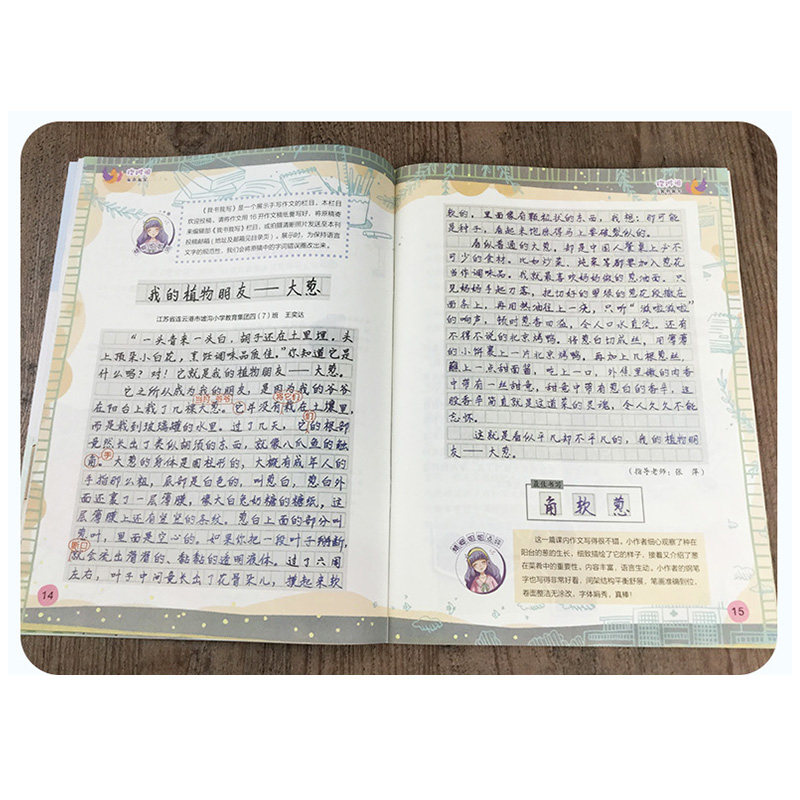 《我书我写》是一个展示手写作文的栏目，本栏目
欢迎投稿，请将作文用16开作文稿纸誊写好，将原稿寄
来编辑部《我书我写》栏目，或拍摄清晰照片发送至本刊
投稿邮箱（地址及邮箱见目录页）。展示时，为保持语言
文字的规范性，我们会将原稿中的字词错误圈改出来。
我的植物朋友——大葱
江苏省连云港市墟沟小学教育集团四（7）班 王奕达
“一头青来一头白，胡子还在土里埋，头
上顶朵小白花，烹饪调味品质佳。”你知道它是
什么吗？对！它就是我的植物朋友——大葱。
它之所以成为我的朋友，是因为我的爷爷
在阳台上栽了几棵大葱。它并没有栽在土壤里，
当时 爷爷 将它们
而是栽到玻璃罐的水里。过了几天，它的根部
们
竟然长出了类似胡须的东西，就像八爪鱼的触
角。大葱的身体是圆柱形的，大概有成年人的
手
手指那么粗，底部是白色的，叫葱白，葱白外
面还裹了一层薄膜，像大白兔奶糖的糖纸，这
层薄膜上还有竖竖的条纹。葱白上面的部分叫
葱叶，里面是空心的。如果你把一段叶子掰断，
断口
就会流出滑滑的、黏黏的透明液体。过了六周
左右，叶子中间竟长出了花骨朵儿，摸起来软
14
软的，里面像有颗粒状的东西，我想：那可能
是种子，看起来饱胀得马上要破裂似的。
看似普通的大葱，却是中国人餐桌上必不
可少的食材。比如炒菜、炖菜等都要加入葱花
当作调味品。我就最喜欢奶奶做的葱油面。只
见奶奶手起刀落，把切好的翠绿的葱花段撒在
面条上，再用热油往上一浇，只听“滋啦滋啦”
的响声，顿时葱香四溢，令人口水直流。还有
不得不说的北京烤鸭，将葱白切成丝，用薄薄
的小饼裹上一片北京烤鸭，再加上几根葱丝，
蘸上一点甜面酱，吃上一口，外焦里嫩的肉香
中带有一丝甜意，甜意中带有葱白的香辛，这
股香辛简直就是这道菜的灵魂，令人久久不能
忘怀。
这就是看似平凡却不平凡的，我的植物朋
友——大葱。
（指导老师：张 萍）
最佳书写
角 软 葱
精细姐姐点评
这一篇课内作文写得很不错，小作者细心观察了种在
阳台的葱的生长，细致描绘了它的样子，接着又介绍了葱
在菜肴中的重要性，内容丰富，语言生动。小作者的钢笔
字也写得非常好看，间架结构平衡舒展，笔画准确到位，
卷面整洁无涂改，字体娟秀，真棒！
15